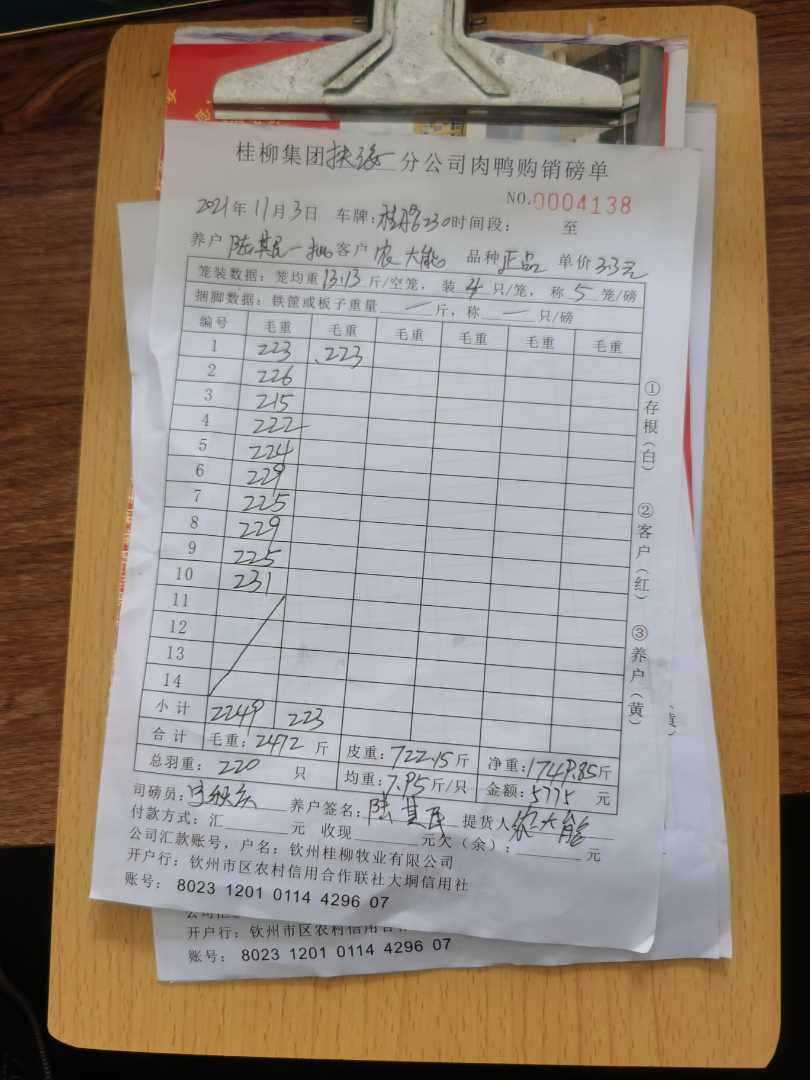 桂柳集团扶绥分公司肉鸭购销磅单
NO.0004138
2021年11月3日 车牌：桂 230时间段： 至
养户 陆其民一批 客户 农大能 品种 正品 单价 3.3元
笼装数据：笼均重13.13斤/空笼， 装4只/笼， 称5笼/磅
捆脚数据：铁筐或板子重量一斤，称一只/磅
编号 毛重 毛重 毛重 毛重 毛重 毛重
1 223 223
2 226
3 215
4 222
5 224
6 229
7 225
8 229
9 225
10 231
11
12
13
14
小计 2249 223
合计 毛重：2472斤 皮重：722.15斤 净重：1749.85斤
总羽重：220只 均重：7.95斤/只 金额：5775元
司磅员： 养户签名：陆其民 提货人 农大能
付款方式：汇 元 收现 元欠（余）： 元
公司汇款账号，户名：钦州桂柳牧业有限公司
开户行：钦州市区农村信用合作联社大垌信用社
账号：8023 1201 0114 4296 07
①存根（白）
②客户（红）
③养户（黄）
黄）
开户行：钦州市区农村信用合
账号：8023 1201 0114 4296 07